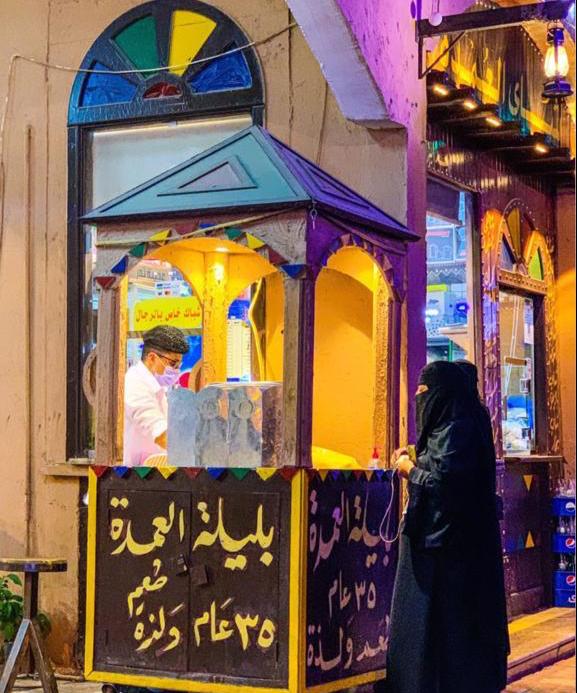 شباك خاص بالرجال
بليلة العمدة
٣٥ عام
طعم
ولذة
بليلة العمدة
٣٥ عام
طعم ولذة